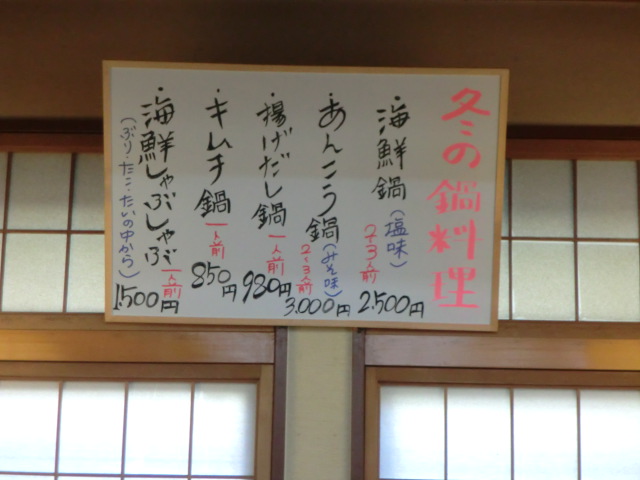 冬の鍋料理
・海鮮鍋(塩味)
2~3人前
2.500円
・あんこう鍋(みそ味)
2~3人前
3.000円
・揚げだし鍋
一人前
980円
・キムチ鍋
一人前
850円
・海鮮しゃぶしゃぶ
一人前
(ぶり・たこ・たいの中から)
1.500円